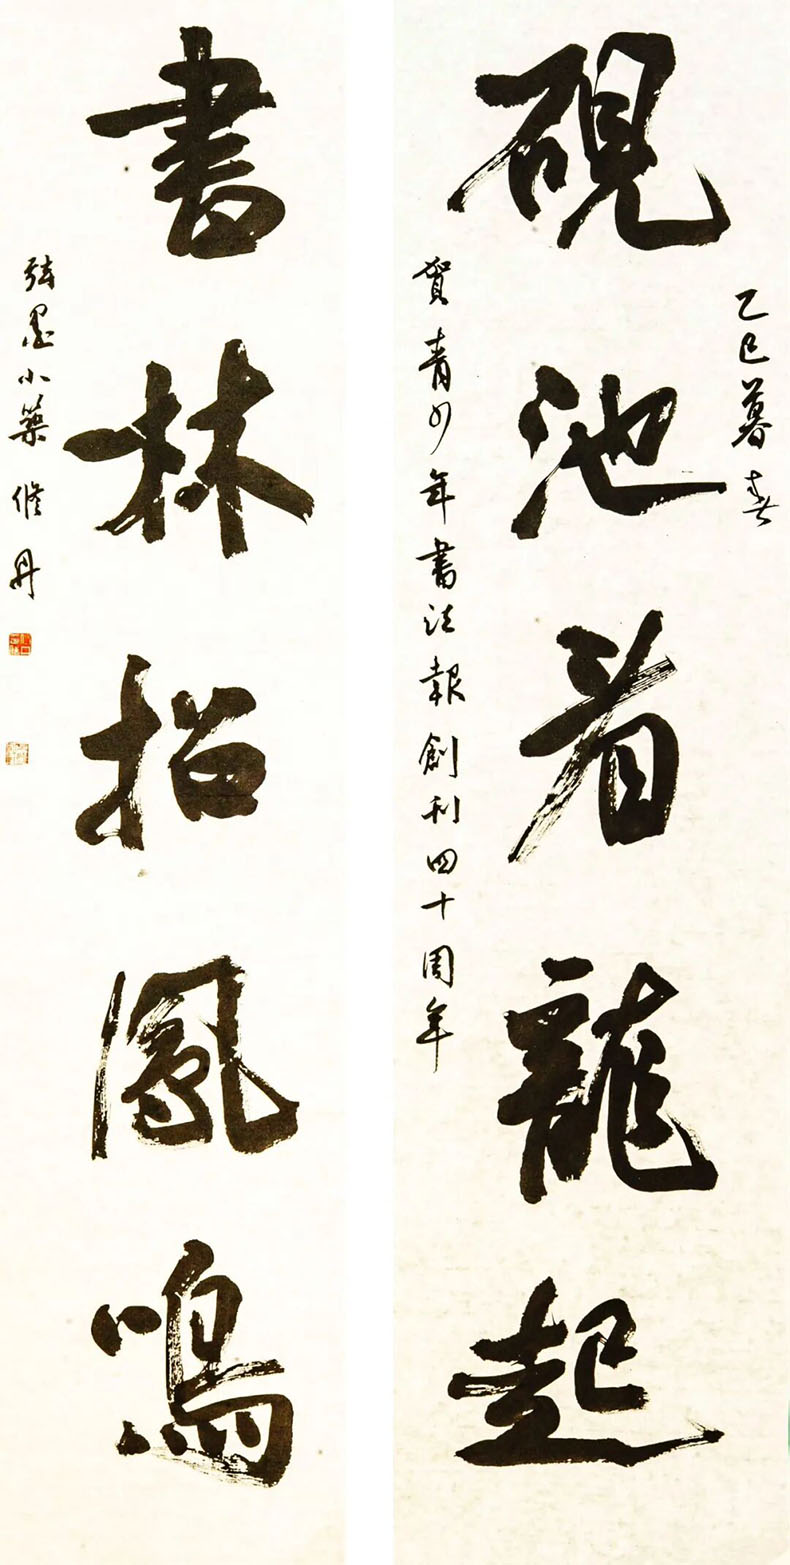 乙巳暮春
硯池看龍起
賀青少年書法報創刊四十周年
書林招鳳鳴
墨小築